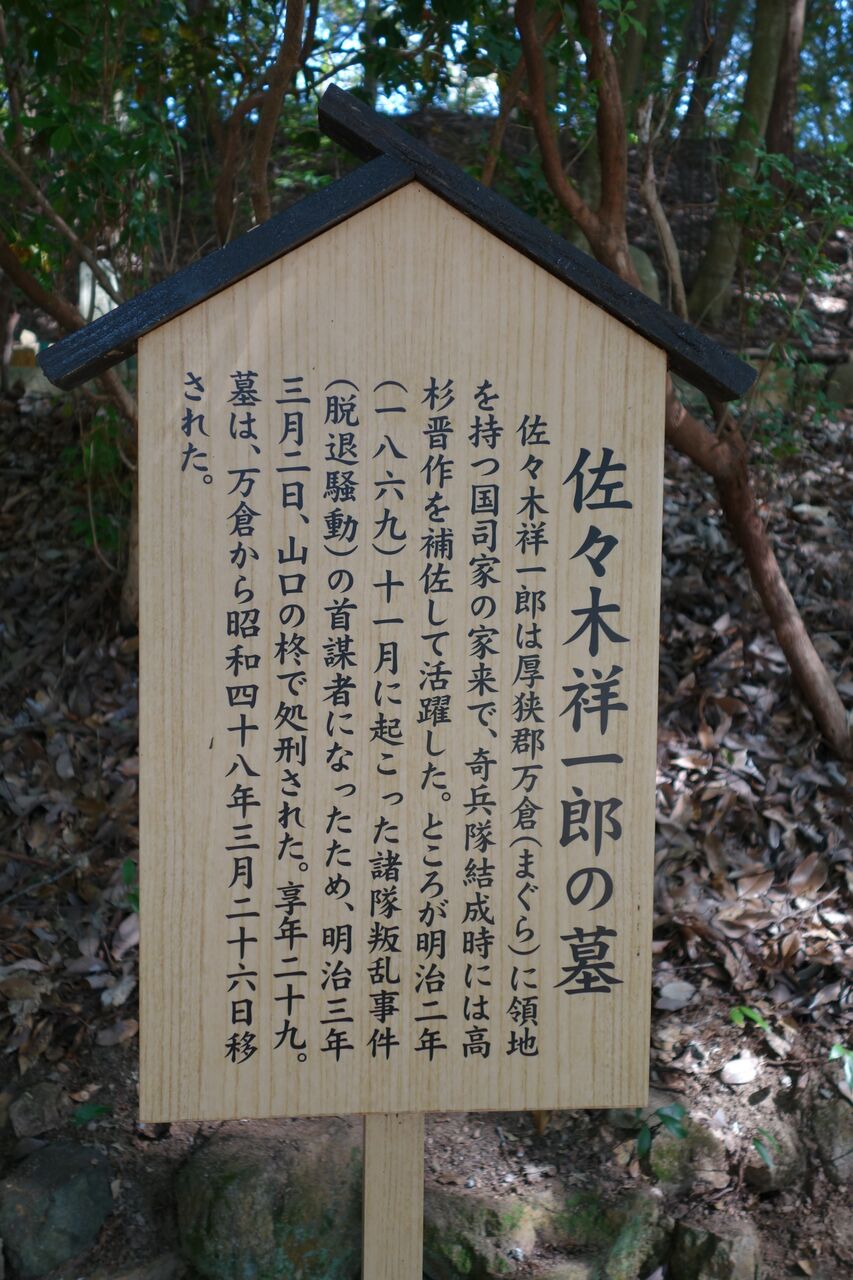 佐々木祥一郎の墓
佐々木祥一郎は厚狭郡万倉(まぐら)に領地
を持つ国司家の家来で、奇兵隊結成時には高
杉晋作を補佐して活躍した。ところが明治二年
(一八六九)十一月に起こった諸隊叛乱事件
(脱退騒動)の首謀者になったため、明治三年
三月二日、山口の柊で処刑された。享年二十九。
墓は、万倉から昭和四十八年三月二十六日移
された。